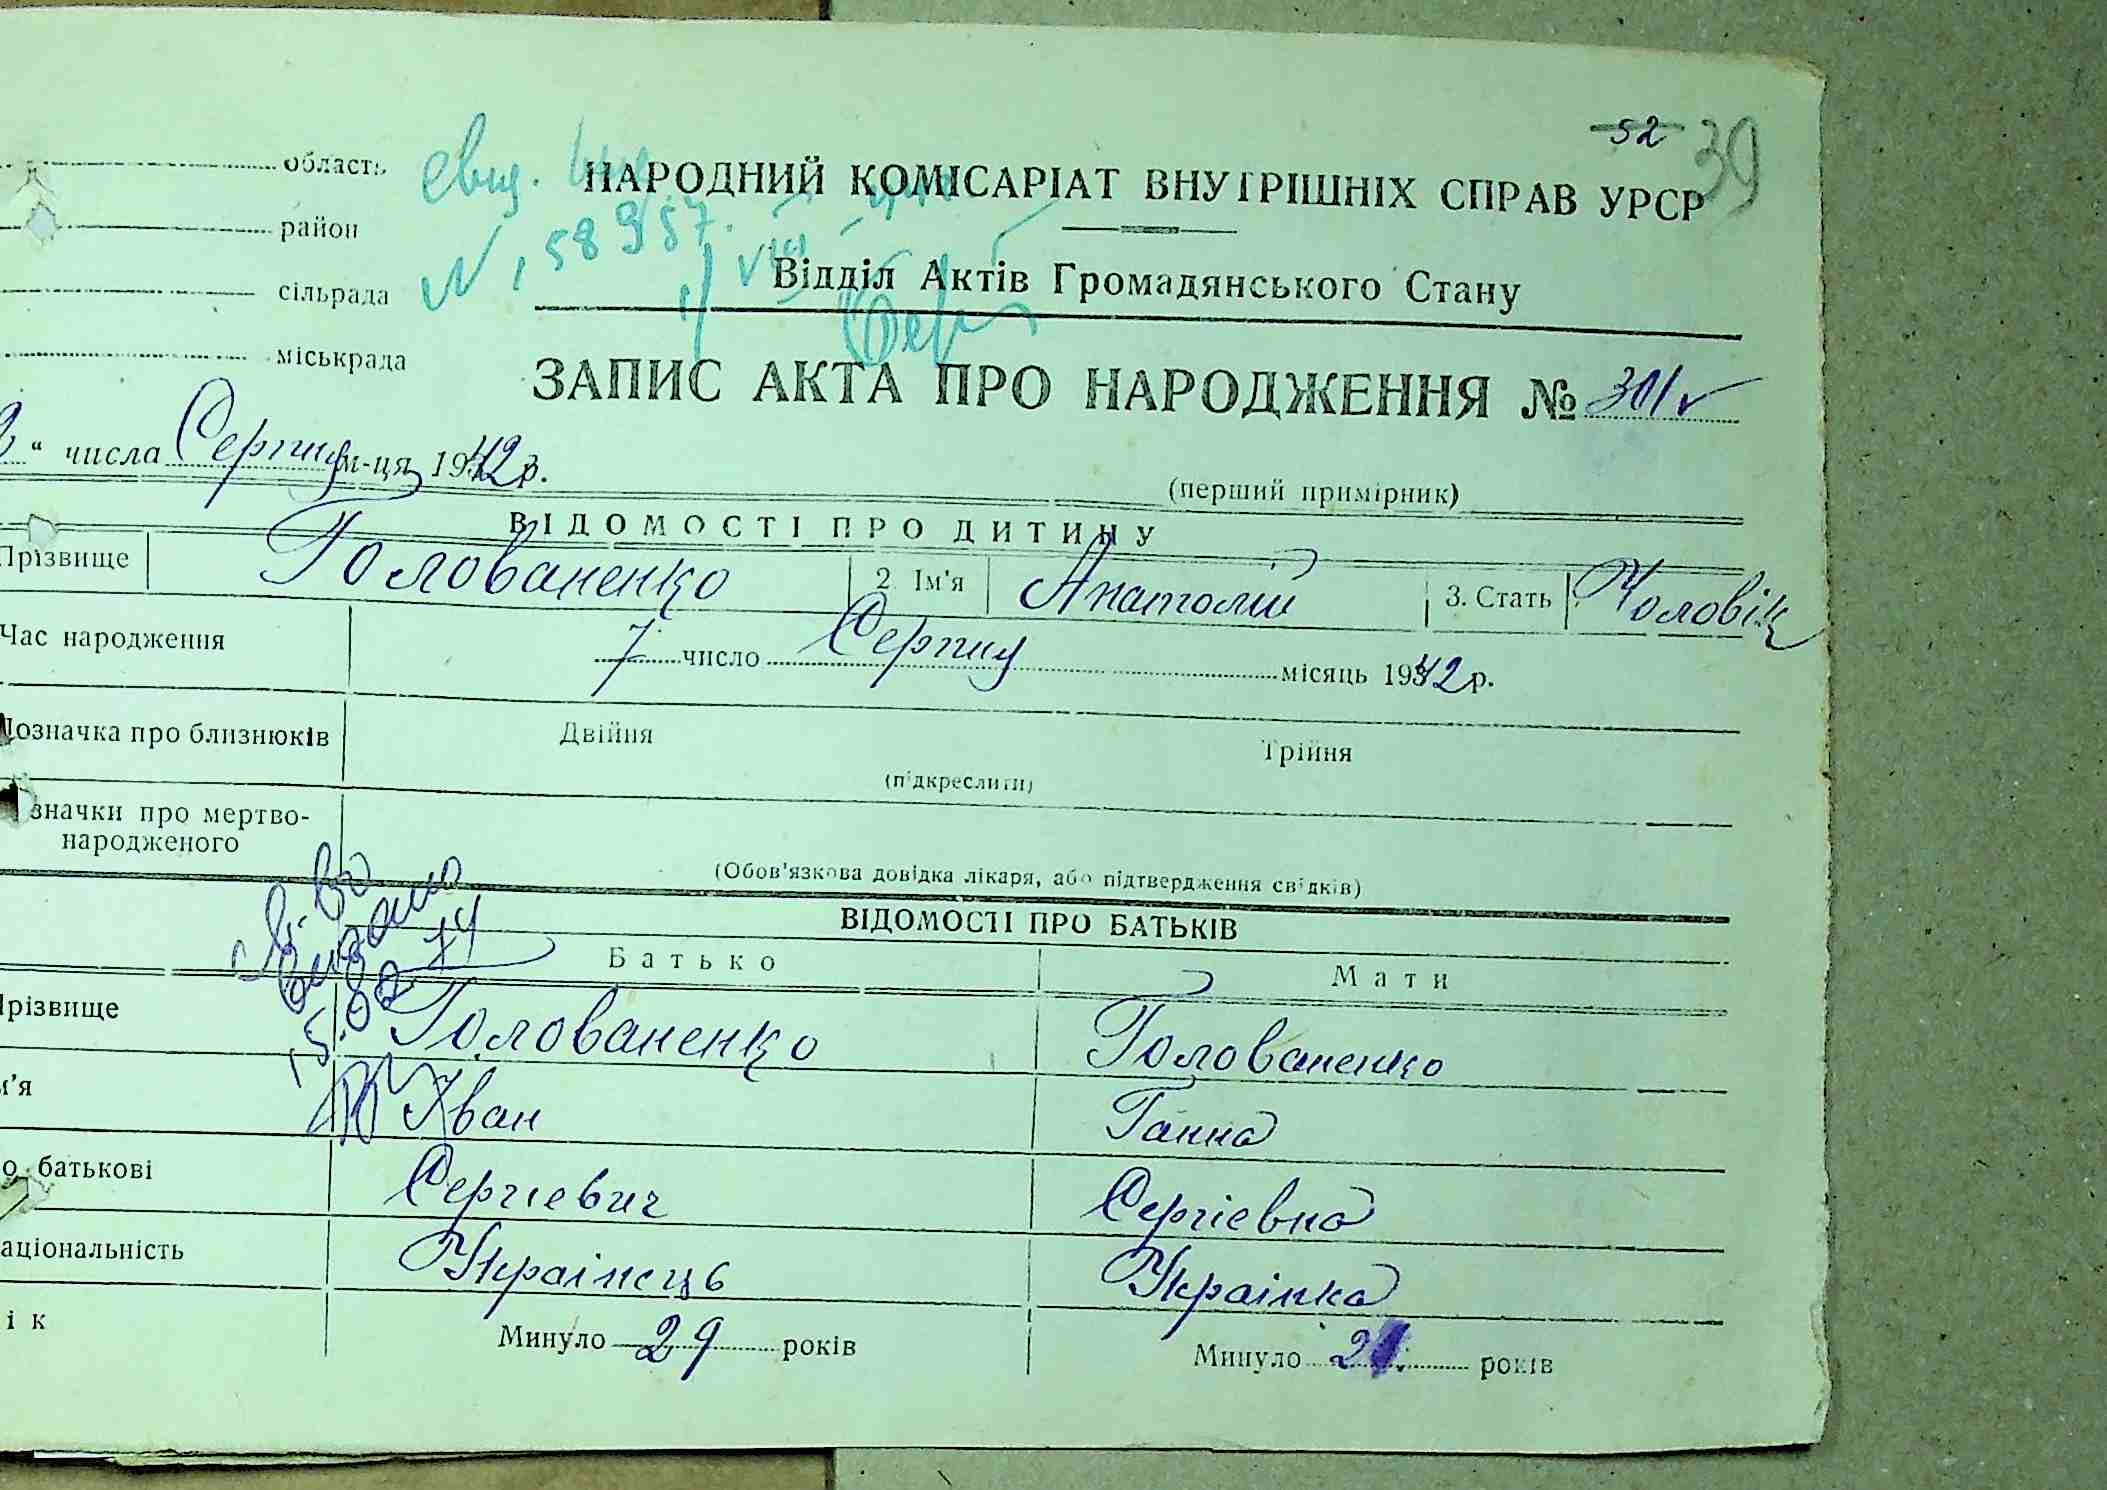 52 39
область
НАРОДНИЙ КОМІСАРІАТ ВНУТРІШНІХ СПРАВ УРСР
район
№ 158957
сільрада
Відділ Актів Громадянського Стану
міськрада
ЗАПИС АКТА ПРО НАРОДЖЕННЯ № 301
“ числа Серпня м-ця 1942 р.
(перший примірник)
ВІДОМОСТІ ПРО ДИТИНУ
Прізвище Голованенко 2 Ім'я Анатолій 3. Стать Чоловік
Час народження 7 число Серпня місяць 1942 р.
Позначка про близнюків Двійня Трійня
(підкреслити)
значки про мертво-
народженого
(Обов'язкова довідка лікаря, або підтвердження свідків)
ВІДОМОСТІ ПРО БАТЬКІВ
Батько Мати
різвище Голованенко Голованенко
м'я Іван Ганна
о батькові Сергієвич Сергієвна
аціональність Українець Українка
ік Минуло 29 років Минуло 21 років
видано
15.02.74